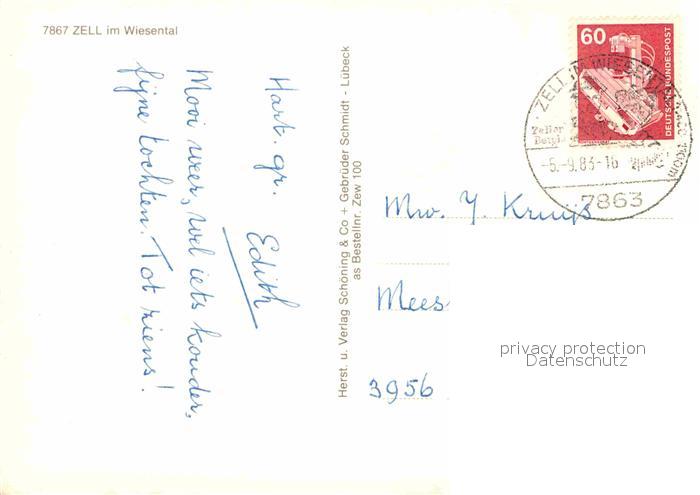 7867 ZELL im Wiesental
Mooi weer, wel iets kouder,
fijne tochten. Tot ziens!
Hart. gr.
Edith
Herst. u. Verlag Schöning & Co + Gebrüder Schmidt - Lübeck
as Bestellnr. Zew 100
60
DEUTSCHE BUNDESPOST
ZELL IM WIESENTAL
Zeller
-5.-9.83-16
7863
Mw. Y. Kruijs
Mees
3956
privacy protection
Datenschutz